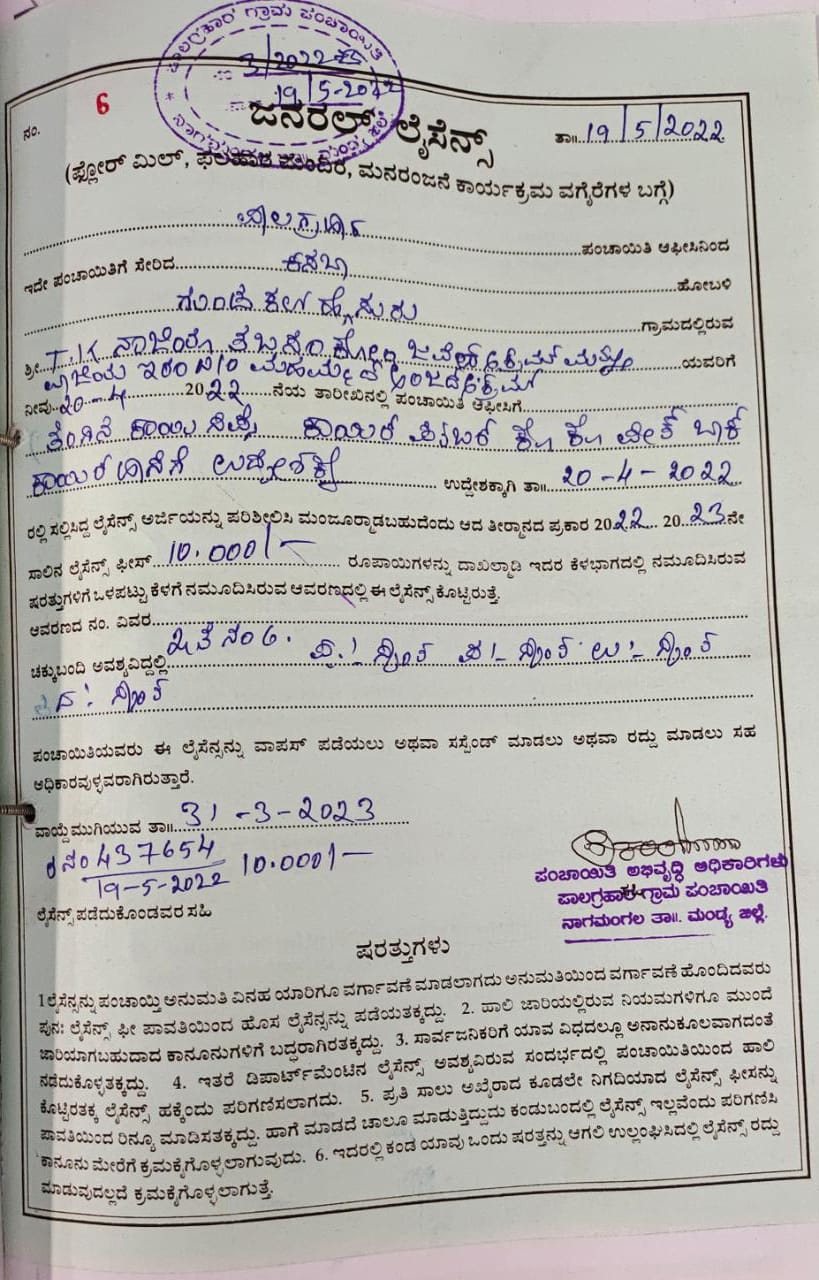 ಪಾಲಗ್ರಹಾರ ಗ್ರಾಮ ಪಂಚಾಯಿತಿ
3/2022
19/5-2022
ನಂ. 6
ಜನರಲ್ ಲೈಸೆನ್ಸ್
ತಾ॥ 19/5/2022
(ಫ್ಲೋರ್ ಮಿಲ್, ಫಲಹಾರ ಮಂದಿರ, ಮನರಂಜನೆ ಕಾರ್ಯಕ್ರಮ ವಗೈರೆಗಳ ಬಗ್ಗೆ)
ಪಾಲಗ್ರಹಾರ ಪಂಚಾಯಿತಿ ಆಫೀಸಿನಿಂದ
ಇದೇ ಪಂಚಾಯಿತಿಗೆ ಸೇರಿದ ಕಸಬಾ ಹೋಬಳಿ
ಗ್ರಾಮದಲ್ಲಿರುವ
ಶ್ರೀ T.K ಯವರಿಗೆ
ನೀವು 20-4 2022 ನೆಯ ತಾರೀಖಿನಲ್ಲಿ ಪಂಚಾಯಿತಿ ಆಫೀಸಿಗೆ
ತೆಂಗಿನ ಕಾಯಿ ಕಾಯಿರ್
ಉದ್ದೇಶಕ್ಕಾಗಿ ತಾ॥ 20-4-2022
ರಲ್ಲಿ ಸಲ್ಲಿಸಿದ್ದ ಲೈಸೆನ್ಸ್ ಅರ್ಜಿಯನ್ನು ಪರಿಶೀಲಿಸಿ ಮಂಜೂರ್ಮಾಡಬಹುದೆಂದು ಆದ ತೀರ್ಮಾನದ ಪ್ರಕಾರ 2022 2023ನೇ
ಸಾಲಿನ ಲೈಸೆನ್ಸ್ ಫೀಸ್ 10.000/- ರೂಪಾಯಿಗಳನ್ನು ದಾಖಲ್ಮಾಡಿ ಇದರ ಕೆಳಭಾಗದಲ್ಲಿ ನಮೂದಿಸಿರುವ
ಷರತ್ತುಗಳಿಗೆ ಒಳಪಟ್ಟು ಕೆಳಗೆ ನಮೂದಿಸಿರುವ ಆವರಣದಲ್ಲಿ ಈ ಲೈಸೆನ್ಸ್ ಕೊಟ್ಟಿರುತ್ತೆ.
ಆವರಣದ ನಂ. ವಿವರ
ಚಕ್ಕುಬಂದಿ ಅವಶ್ಯವಿದ್ದಲ್ಲಿ
ಪಂಚಾಯಿತಿಯವರು ಈ ಲೈಸೆನ್ಸನ್ನು ವಾಪಸ್ ಪಡೆಯಲು ಅಥವಾ ಸಸ್ಪೆಂಡ್ ಮಾಡಲು ಅಥವಾ ರದ್ದು ಮಾಡಲು ಸಹ
ಅಧಿಕಾರವುಳ್ಳವರಾಗಿರುತ್ತಾರೆ.
ವಾಯ್ದೆ ಮುಗಿಯುವ ತಾ॥ 31-3-2023
ರ ನಂ 437654
19-5-2022 10.000/-
ಪಂಚಾಯಿತಿ ಅಭಿವೃದ್ಧಿ ಅಧಿಕಾರಿಗಳು
ಪಾಲಗ್ರಹಾರ ಗ್ರಾಮ ಪಂಚಾಯಿತಿ
ನಾಗಮಂಗಲ ತಾ॥. ಮಂಡ್ಯ ಜಿಲ್ಲೆ.
ಲೈಸೆನ್ಸ್ ಪಡೆದುಕೊಂಡವರ ಸಹಿ
ಷರತ್ತುಗಳು
1 ಲೈಸೆನ್ಸನ್ನು ಪಂಚಾಯ್ತಿ ಅನುಮತಿ ವಿನಹ ಯಾರಿಗೂ ವರ್ಗಾವಣೆ ಮಾಡಲಾಗದು ಅನುಮತಿಯಿಂದ ವರ್ಗಾವಣೆ ಹೊಂದಿದವರು
ಪುನಃ ಲೈಸೆನ್ಸ್ ಫೀ ಪಾವತಿಯಿಂದ ಹೊಸ ಲೈಸೆನ್ಸನ್ನು ಪಡೆಯತಕ್ಕದ್ದು. 2. ಹಾಲಿ ಜಾರಿಯಲ್ಲಿರುವ ನಿಯಮಗಳಿಗೂ ಮುಂದೆ
ಜಾರಿಯಾಗಬಹುದಾದ ಕಾನೂನುಗಳಿಗೆ ಬದ್ಧರಾಗಿರತಕ್ಕದ್ದು. 3. ಸಾರ್ವಜನಿಕರಿಗೆ ಯಾವ ವಿಧದಲ್ಲೂ ಅನಾನುಕೂಲವಾಗದಂತೆ
ನಡೆದುಕೊಳ್ಳತಕ್ಕದ್ದು. 4. ಇತರೆ ಡಿಪಾರ್ಟ್‌ಮೆಂಟಿನ ಲೈಸೆನ್ಸ್ ಅವಶ್ಯವಿರುವ ಸಂದರ್ಭದಲ್ಲಿ ಪಂಚಾಯಿತಿಯಿಂದ ಹಾಲಿ
ಕೊಟ್ಟಿರತಕ್ಕ ಲೈಸೆನ್ಸ್ ಹಕ್ಕೆಂದು ಪರಿಗಣಿಸಲಾಗದು. 5. ಪ್ರತಿ ಸಾಲು ಅಖೈರಾದ ಕೂಡಲೇ ನಿಗದಿಯಾದ ಲೈಸೆನ್ಸ್ ಫೀಸನ್ನು
ಪಾವತಿಯಿಂದ ರಿನ್ಯೂ ಮಾಡಿಸತಕ್ಕದ್ದು. ಹಾಗೆ ಮಾಡದೆ ಚಾಲೂ ಮಾಡುತ್ತಿದ್ದುದು ಕಂಡುಬಂದಲ್ಲಿ ಲೈಸೆನ್ಸ್ ಇಲ್ಲವೆಂದು ಪರಿಗಣಿಸಿ
ಕಾನೂನು ಮೇರೆಗೆ ಕ್ರಮಕೈಗೊಳ್ಳಲಾಗುವುದು. 6. ಇದರಲ್ಲಿ ಕಂಡ ಯಾವು ಒಂದು ಷರತ್ತನ್ನು ಆಗಲಿ ಉಲ್ಲಂಘಿಸಿದಲ್ಲಿ ಲೈಸೆನ್ಸ್ ರದ್ದು
ಮಾಡುವುದಲ್ಲದೆ ಕ್ರಮಕೈಗೊಳ್ಳಲಾಗುತ್ತೆ.